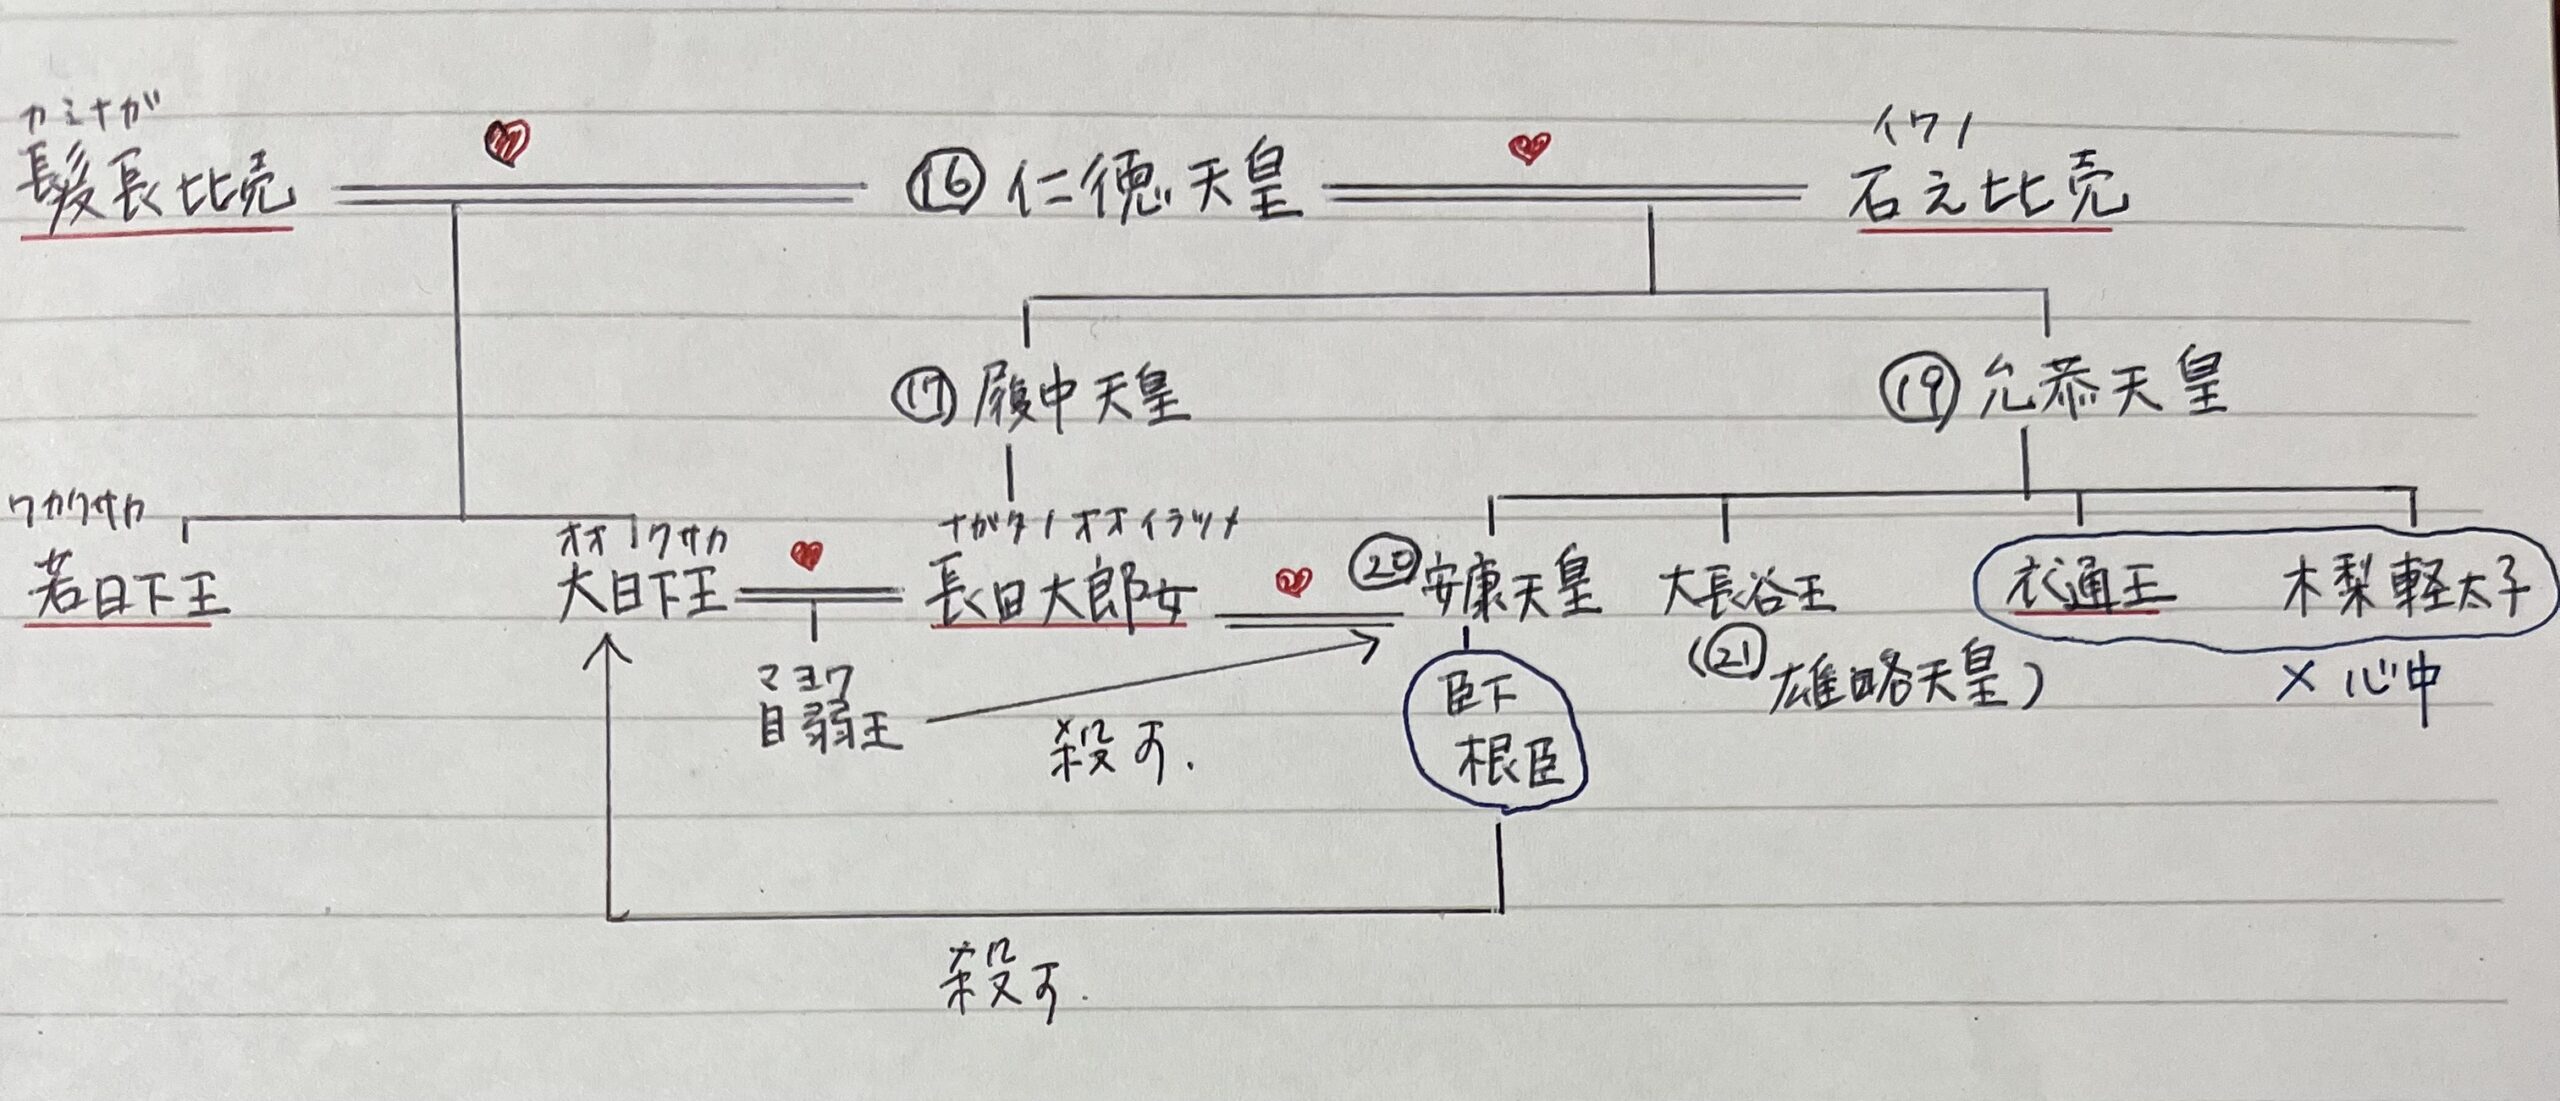 カミナガ
髪長比売
⑯仁徳天皇
イワノ
石之比売
⑰履中天皇
⑲允恭天皇
ワカクサカ
若日下王
オオクサカ
大日下王
ナガタノオオイラツメ
長田大郎女
⑳安康天皇
大長谷王
(㉑雄略天皇)
衣通王
木梨軽太子
×心中
マヨワ
目弱王
殺す.
臣下
根臣
殺す.